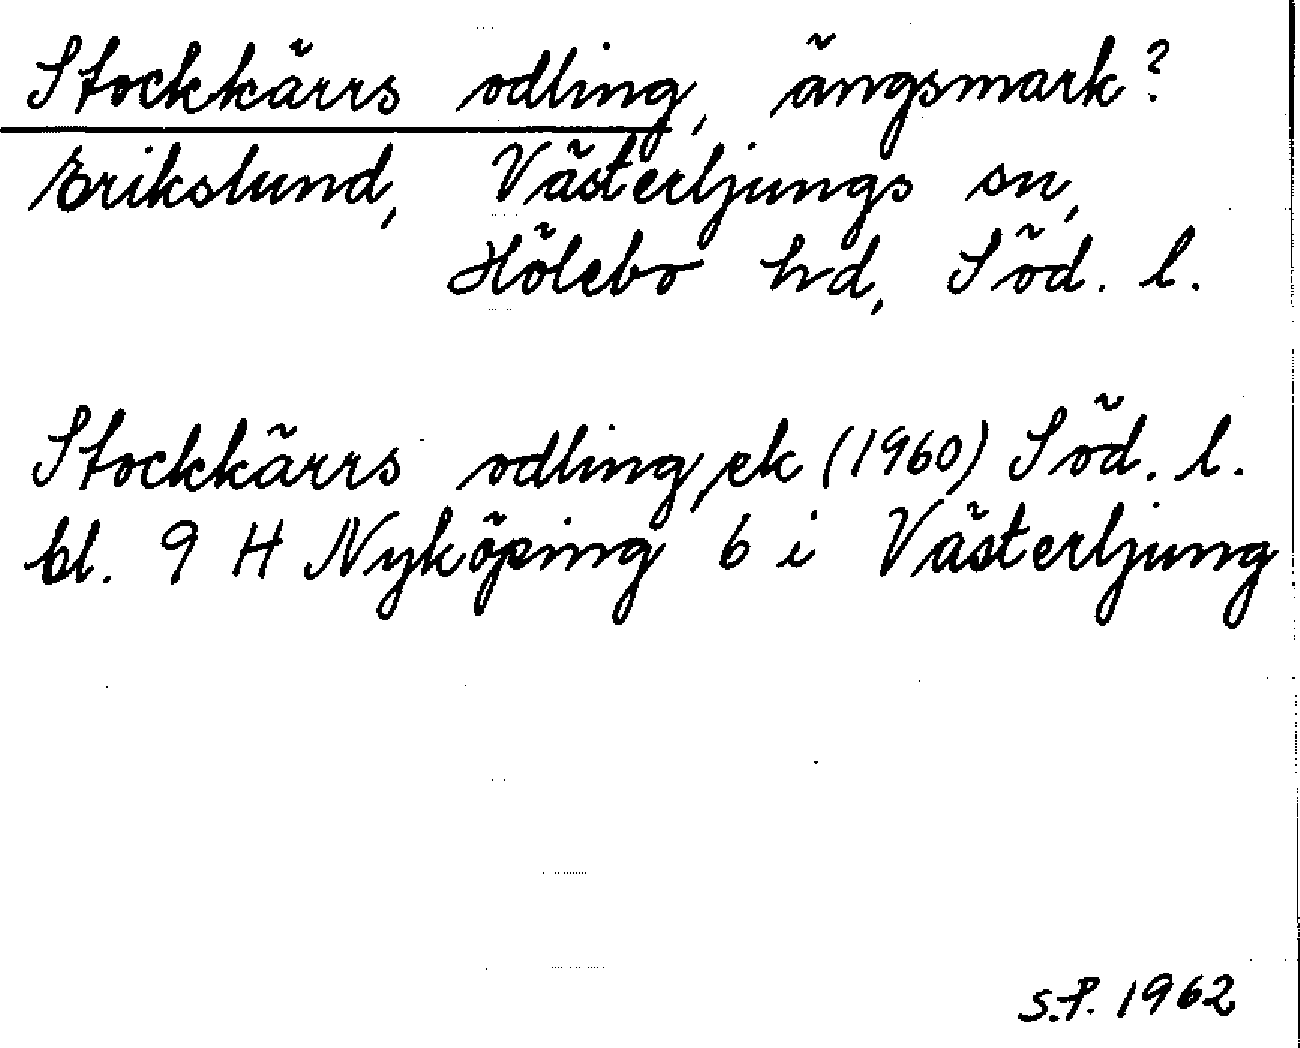 Stockkärrs odling, ängsmark?
Erikslund, Västerljungs sn,
Hölebo hd, Söd. l.
Stockkärrs odling, ek (1960) Söd. l.
bl. 9 H Nyköping 6 i Västerljung
S.P. 1962